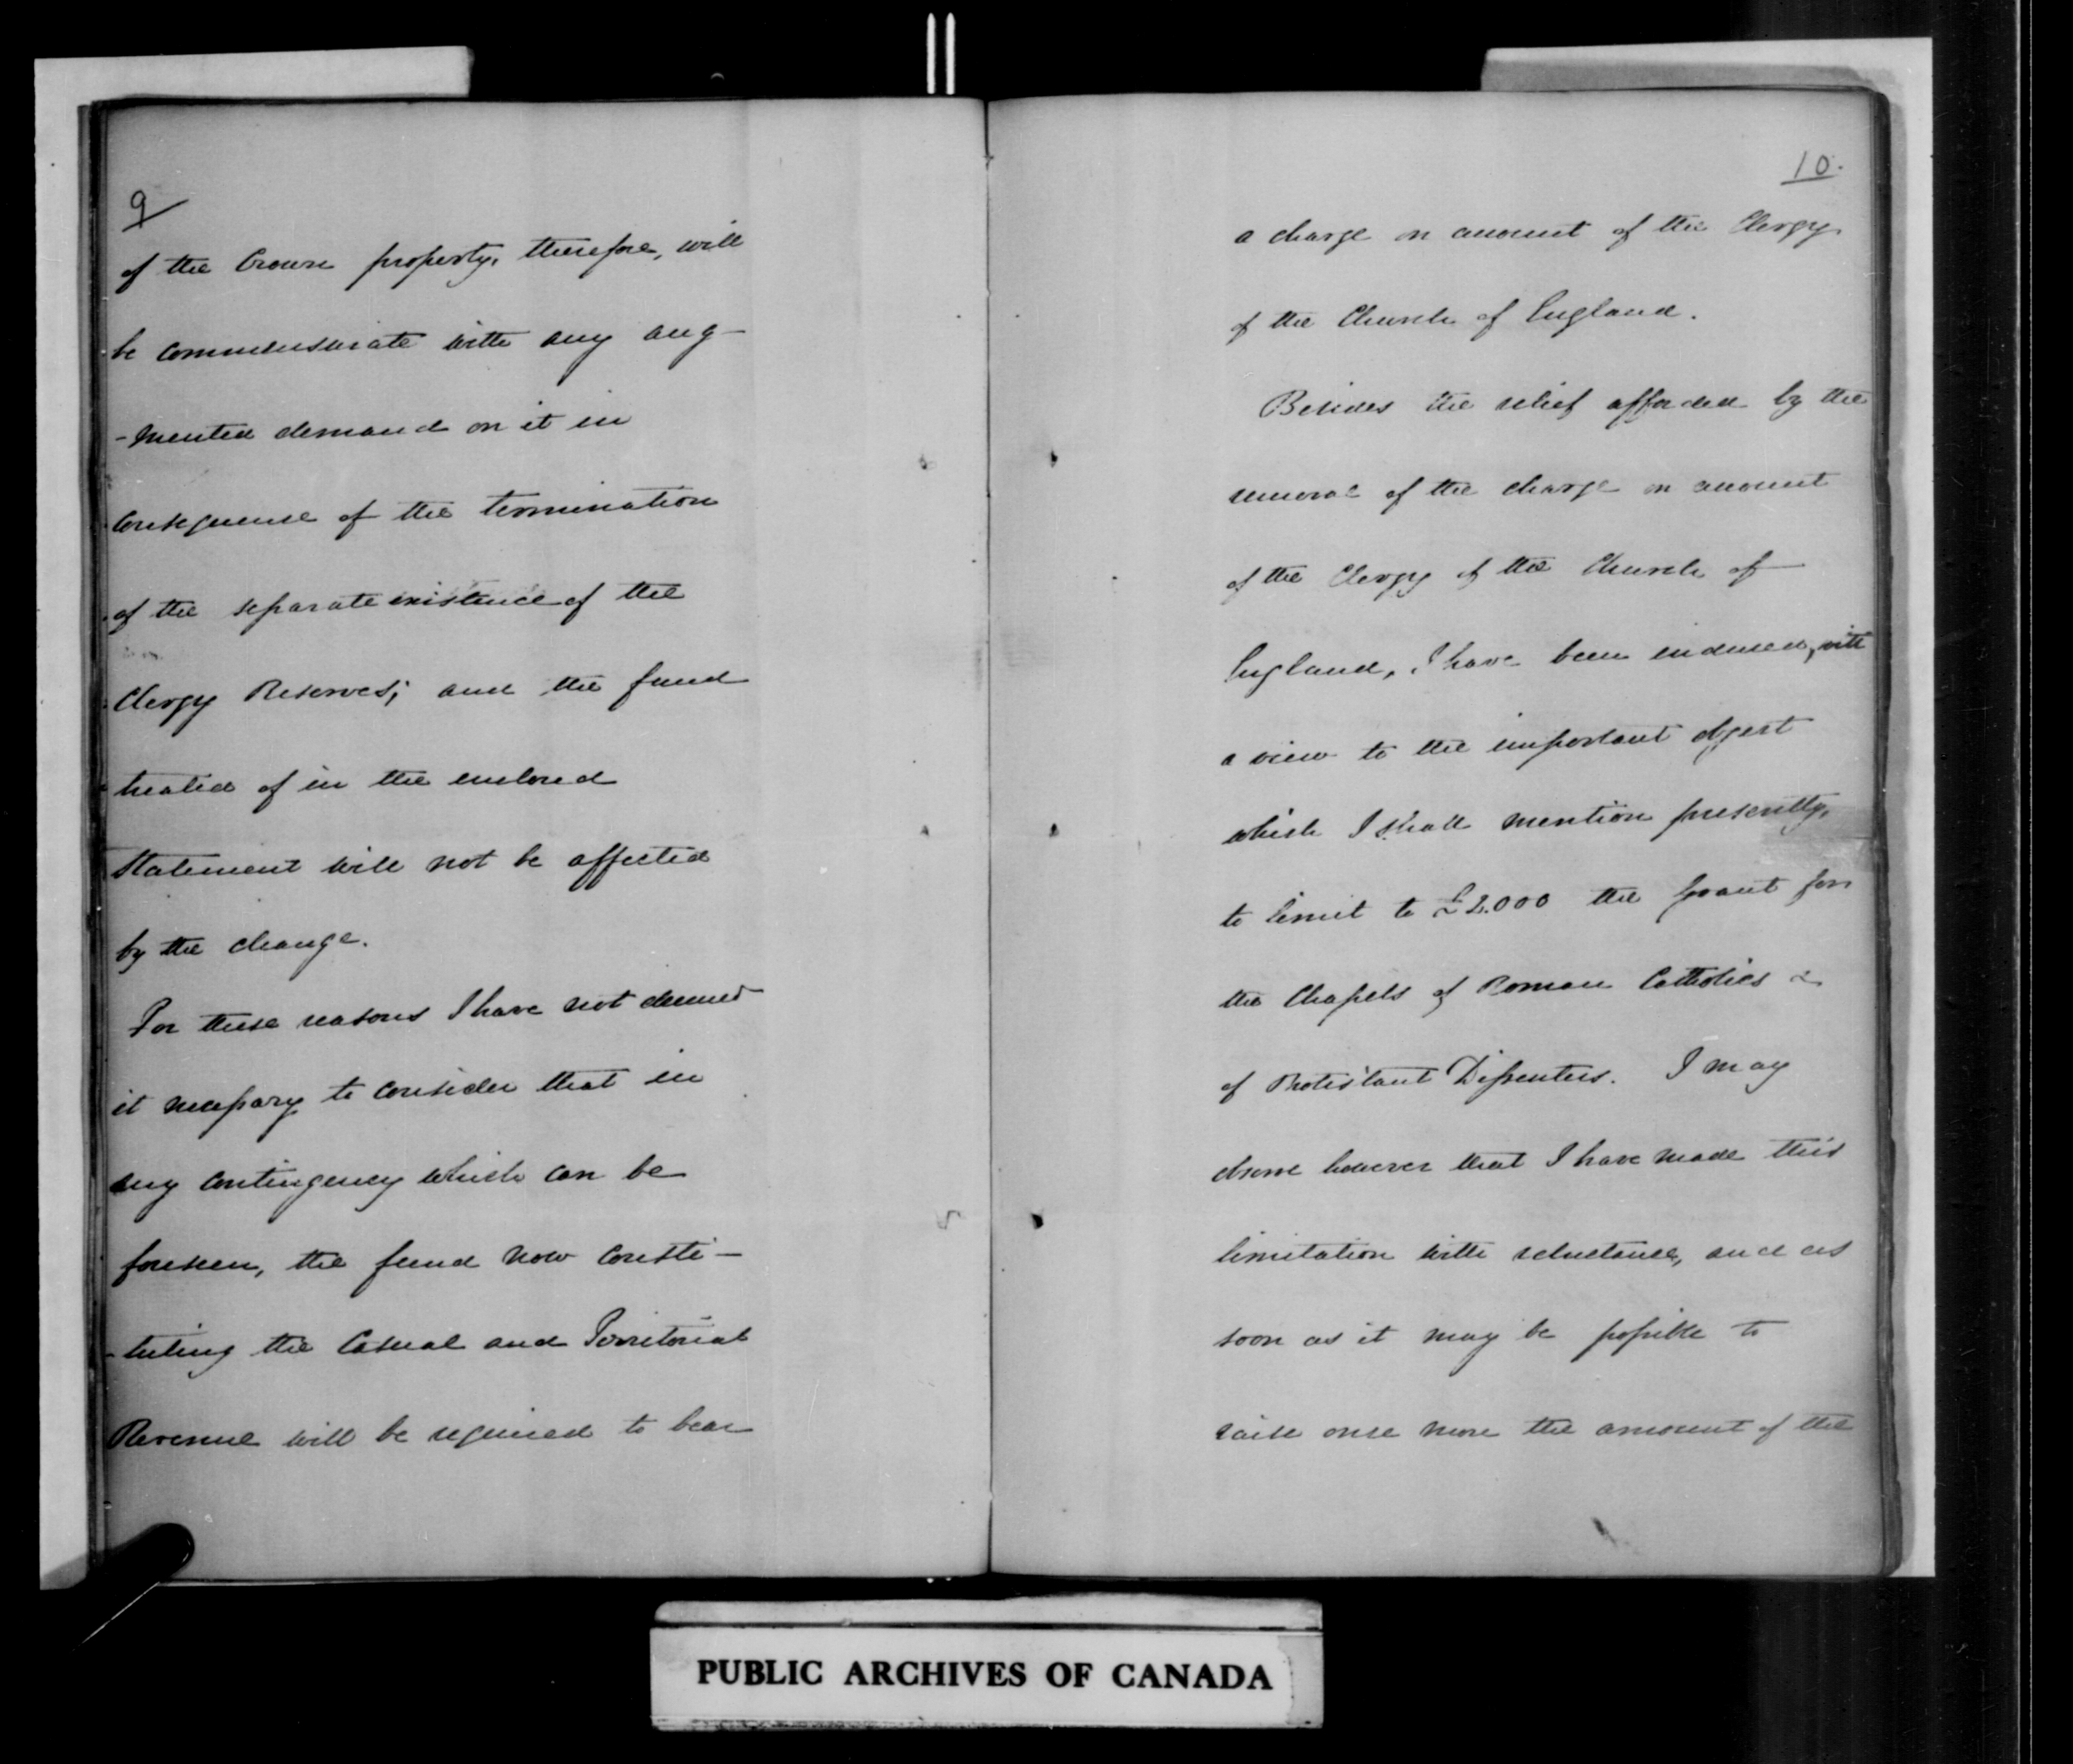 9
of the Crown property, therefore, will
be commensurate with any aug-
-mented demand on it in
consequence of the termination
of the separate existence of the
Clergy Reserves; and the fund
treated of in the enclosed
Statement will not be affected
by the change.
For these reasons I have not deemed
it necessary to consider that in
any contingency which can be
foreseen, the fund now consti-
-tuting the Casual and Territorial
Revenue will be required to bear
10.
a charge on account of the Clergy
of the Church of England.
Besides the relief afforded by the
removal of the charge on account
of the Clergy of the Church of
England, I have been induced, with
a view to the important object
which I shall mention presently,
to limit to £2.000 the Grant for
the Chapels of Roman Catholics &
of Protestant Dissenters. I may
observe however that I have made this
limitation with reluctance, and as
soon as it may be possible to
raise once more the amount of the
PUBLIC ARCHIVES OF CANADA